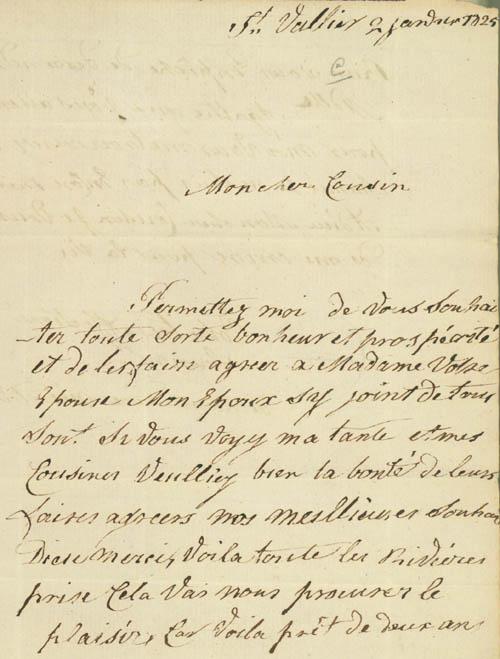 St. Vallier 2 janvier 1825
Mon cher Cousin
Permettez moi de vous souhai
-ter toute sorte bonheur et prospérité
et de les faire agreer a Madame Votre
Epouse Mon Epoux sy joint de tous
son Si vous voyez ma tante et mes
Cousines Veulliez bien la bonté de leurs
faires agreers nos meslieures souhai
Dieu merci, Voila toute les Rivières
prise Cela Vas nous procurer le
plaisir, Car Voila prêt de deux an